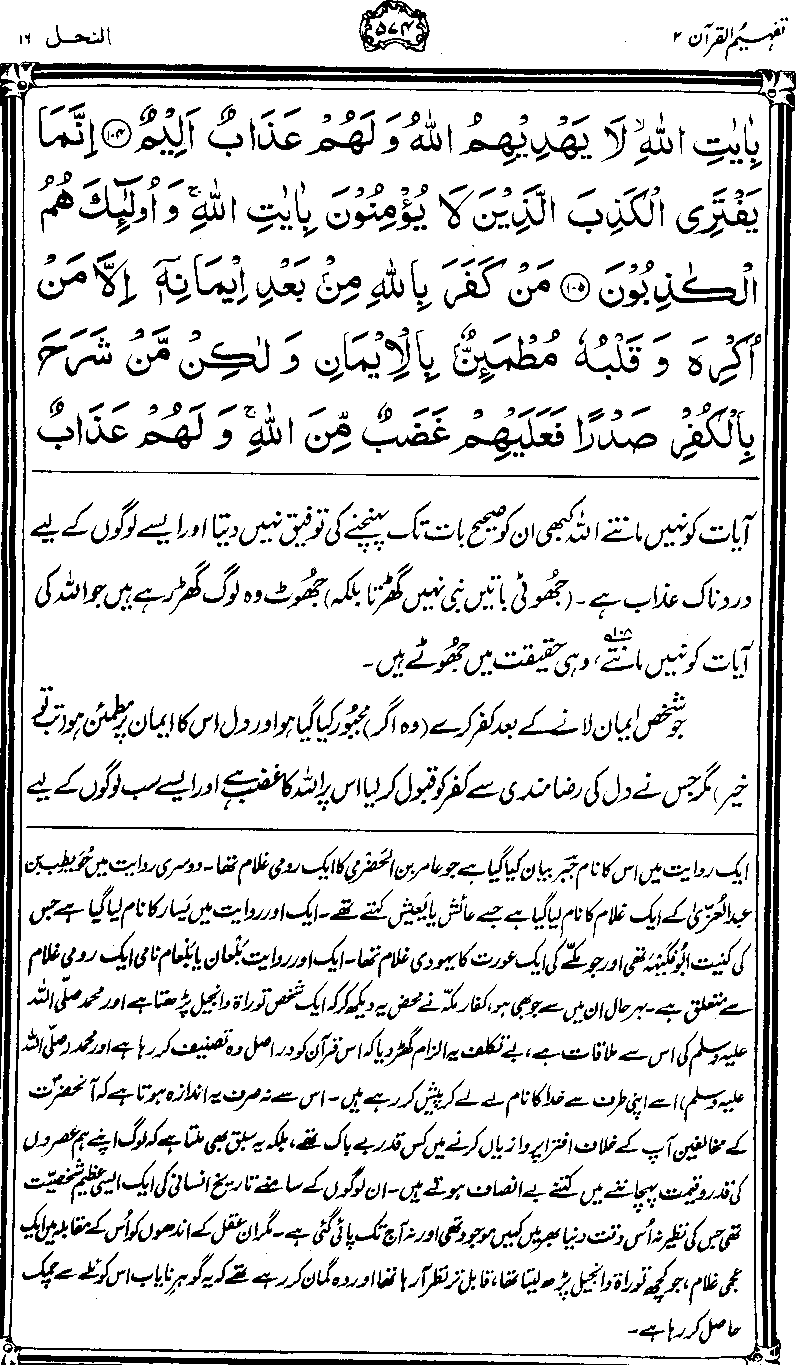 تفہیم القرآن ۲
۵۷۴
النحل ۱۶
بِاٰیٰتِ اللّٰهِ ۙ لَا یَهْدِیْهِمُ اللّٰهُ وَ لَهُمْ عَذَابٌ اَلِیْمٌ ﴿۱۰۴﴾ اِنَّمَا
یَفْتَرِی الْكَذِبَ الَّذِیْنَ لَا یُؤْمِنُوْنَ بِاٰیٰتِ اللّٰهِ ۚ وَ اُولٰٓىِٕكَ هُمُ
الْكٰذِبُوْنَ ﴿۱۰۵﴾ مَنْ كَفَرَ بِاللّٰهِ مِنْۢ بَعْدِ اِیْمَانِهٖۤ اِلَّا مَنْ
اُكْرِهَ وَ قَلْبُهٗ مُطْمَىِٕنٌّۢ بِالْاِیْمَانِ وَ لٰكِنْ مَّنْ شَرَحَ
بِالْكُفْرِ صَدْرًا فَعَلَیْهِمْ غَضَبٌ مِّنَ اللّٰهِ ۚ وَ لَهُمْ عَذَابٌ
آیات کو نہیں مانتے اللہ کبھی ان کو صحیح بات تک پہنچنے کی توفیق نہیں دیتا اور ایسے لوگوں کے لیے
دردناک عذاب ہے۔ (جھوٹی باتیں نبی نہیں گھڑتا بلکہ) جھوٹ وہ لوگ گھڑ رہے ہیں جو اللہ کی
آیات کو نہیں مانتے۱۰۸، وہی حقیقت میں جھوٹے ہیں۔
جو شخص ایمان لانے کے بعد کفر کرے (وہ اگر) مجبور کیا گیا ہو اور دل اس کا ایمان پر مطمئن ہو (تب تو
خیر) مگر جس نے دل کی رضامندی سے کفر کو قبول کر لیا اس پر اللہ کا غضب ہے اور ایسے سب لوگوں کے لیے
ایک روایت میں اس کا نام جبر بیان کیا گیا ہے جو عامر بن الحضرمی کا ایک رومی غلام تھا۔ دوسری روایت میں حُوَیطِب بن
عبدالعُزّیٰ کے ایک غلام کا نام لیا گیا ہے جسے عائش یا یعیش کہتے تھے۔ ایک اور روایت میں یسار کا نام لیا گیا ہے جس
کی کنیت ابو فکیہہ تھی اور جو مکّے کی ایک عورت کا یہودی غلام تھا۔ ایک اور روایت بلعان یا بلعام نامی ایک رومی غلام
سے متعلق ہے۔ بہرحال ان میں سے جو بھی ہو، کفار مکہ نے محض یہ دیکھ کر کہ ایک شخص توراۃ و انجیل پڑھتا ہے اور محمد صلی اللہ
علیہ وسلم کی اس سے ملاقات ہے، بے تکلف یہ الزام گھڑ دیا کہ اس قرآن کو دراصل وہ تصنیف کر رہا ہے اور محمد (صلی اللہ
علیہ وسلم) اسے اپنی طرف سے خدا کا نام لے لے کر پیش کر رہے ہیں۔ اس سے نہ صرف یہ اندازہ ہوتا ہے کہ آنحضرتؐ
کے مخالفین آپ کے خلاف افترا پردازیاں کرنے میں کس قدر بے باک تھے، بلکہ یہ سبق بھی ملتا ہے کہ لوگ اپنے ہم عصروں
کی قدر و قیمت پہچاننے میں کتنے بے انصاف ہوتے ہیں۔ ان لوگوں کے سامنے تاریخ انسانی کی ایک ایسی عظیم شخصیت
تھی جس کی نظیر نہ اُس وقت دنیا بھر میں کہیں موجود تھی اور نہ آج تک پائی گئی ہے۔ مگر ان عقل کے اندھوں کو اُس کے مقابلہ میں ایک
عجمی غلام، جو کچھ توراۃ و انجیل پڑھ لیتا تھا، قابل تر نظر آ رہا تھا اور وہ گمان کر رہے تھے کہ یہ گوہر نایاب اس کوئلے سے چمک
حاصل کر رہا ہے۔